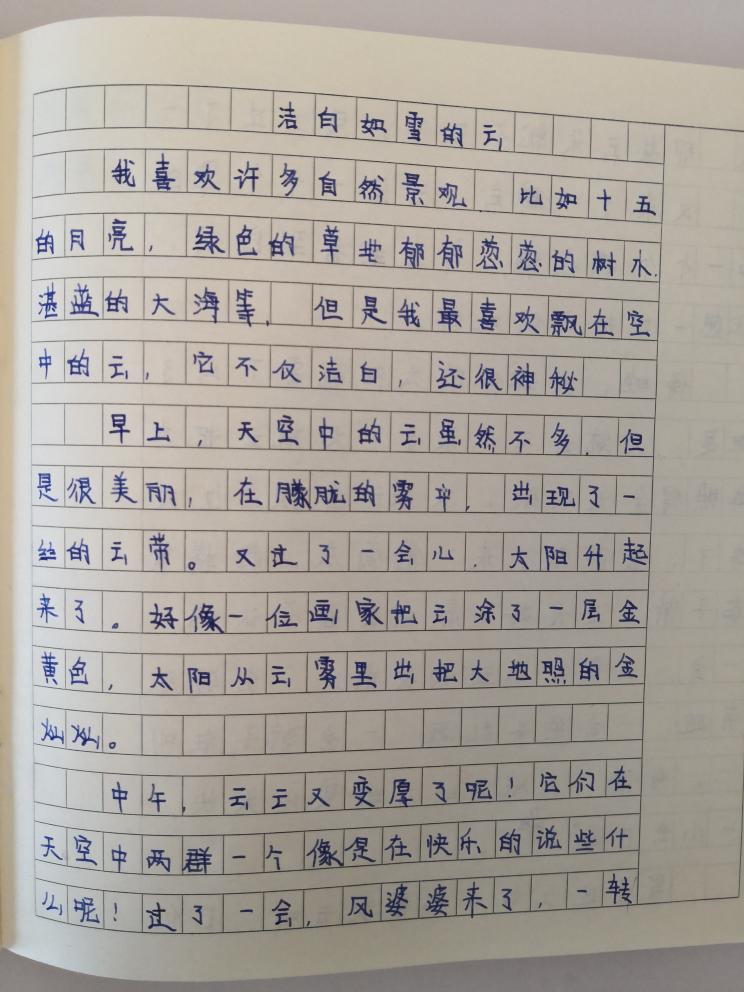 洁白如雪的云
我喜欢许多自然景观、比如十五
的月亮，绿色的草地郁郁葱葱的树木、
湛蓝的大海等，但是我最喜欢飘在空
中的云，它不仅洁白，还很神秘
早上，天空中的云虽然不多、但
是很美丽，在朦胧的雾中，出现了一
丝的云带。又过了一会儿、太阳升起
来了。好像一位画家把云涂了一层金
黄色，太阳从云雾里出把大地照的金
灿灿。
中午，云云又变厚了呢！它们在
天空中两群一个像是在快乐的说些什
么呢！过了一会，风婆婆来了，一转